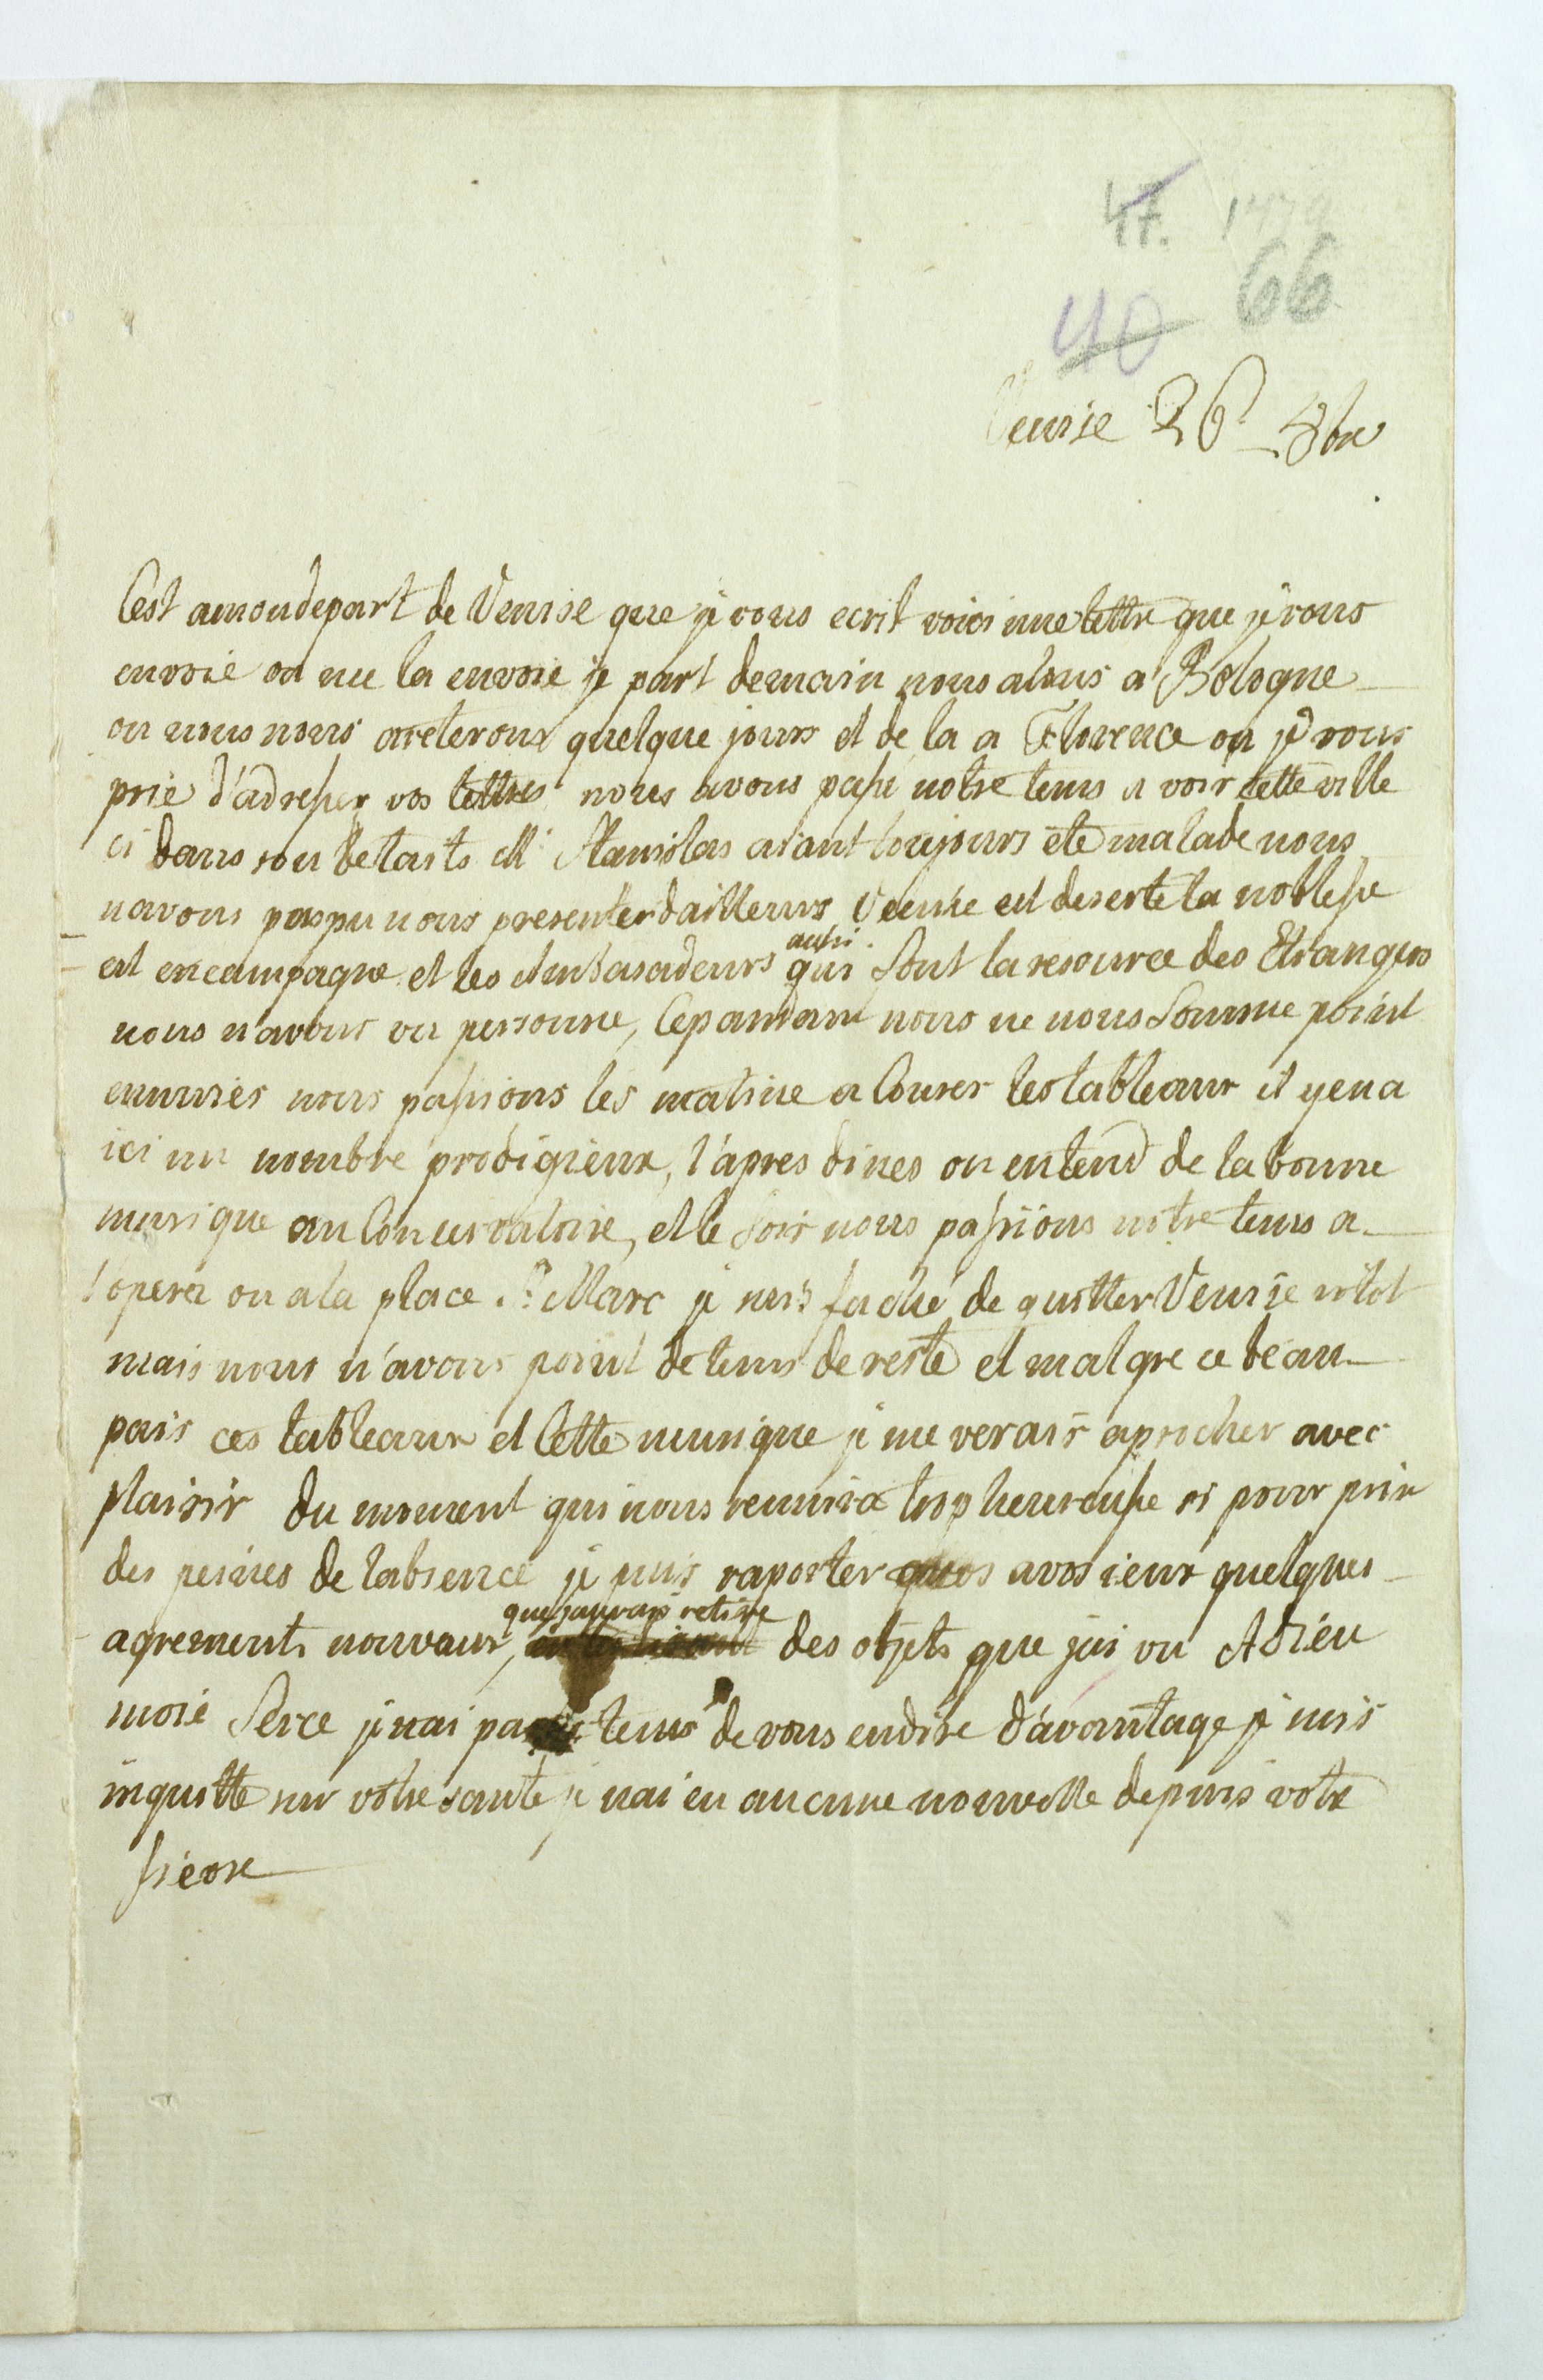 47. 1779
66
40
Venise 26 8bre
Cest amondepart de Venise que je vous ecrit voici une lettre que je vous
envoie on me la envoie je part demain nous alons a Bologne
ou nous nous areterons quelque jours et de la a Florence ou je vous
prie d'adresser vos lettres nous avons passé notre tems a voir cette ville
ci dans son detaits Mr Stanislas aiant toujours eté malade nous
navons pas pu nous presenter dailleurs Venise est deserte la noblesse
est en campagne et les Ambasadeurs aussi qui sont la resource des Etrangers
nous n'avons vu personne, Cepandant nous ne nous somme point
ennuies nous passions les matine a Courer les tableaux il y en a
ici un nombre prodigieux, l'apres dines on entend de la bonne
musique au Conservatoire, et le soir nous passions notre tems a
l'opera ou a la place St Marc je suis faché de quitter Venise sitot
mais nous n'avons point de tems de reste et malgre ce beau
pais ces tableaux et Cette musique je me verais aprocher avec
plaisir du moment qui nous reunira trop heureusse si pour prix
des peines de labsence je puis raporter a vos ieux quelques
agrements nouvaux, que jaurais retiré des objets que jai vu Adieu
moie Serce je nai pas le tems de vous en dire d'avantage je suis
inquiette sur votre santé je nai eu aucune nouvelle depuis votre
fievre